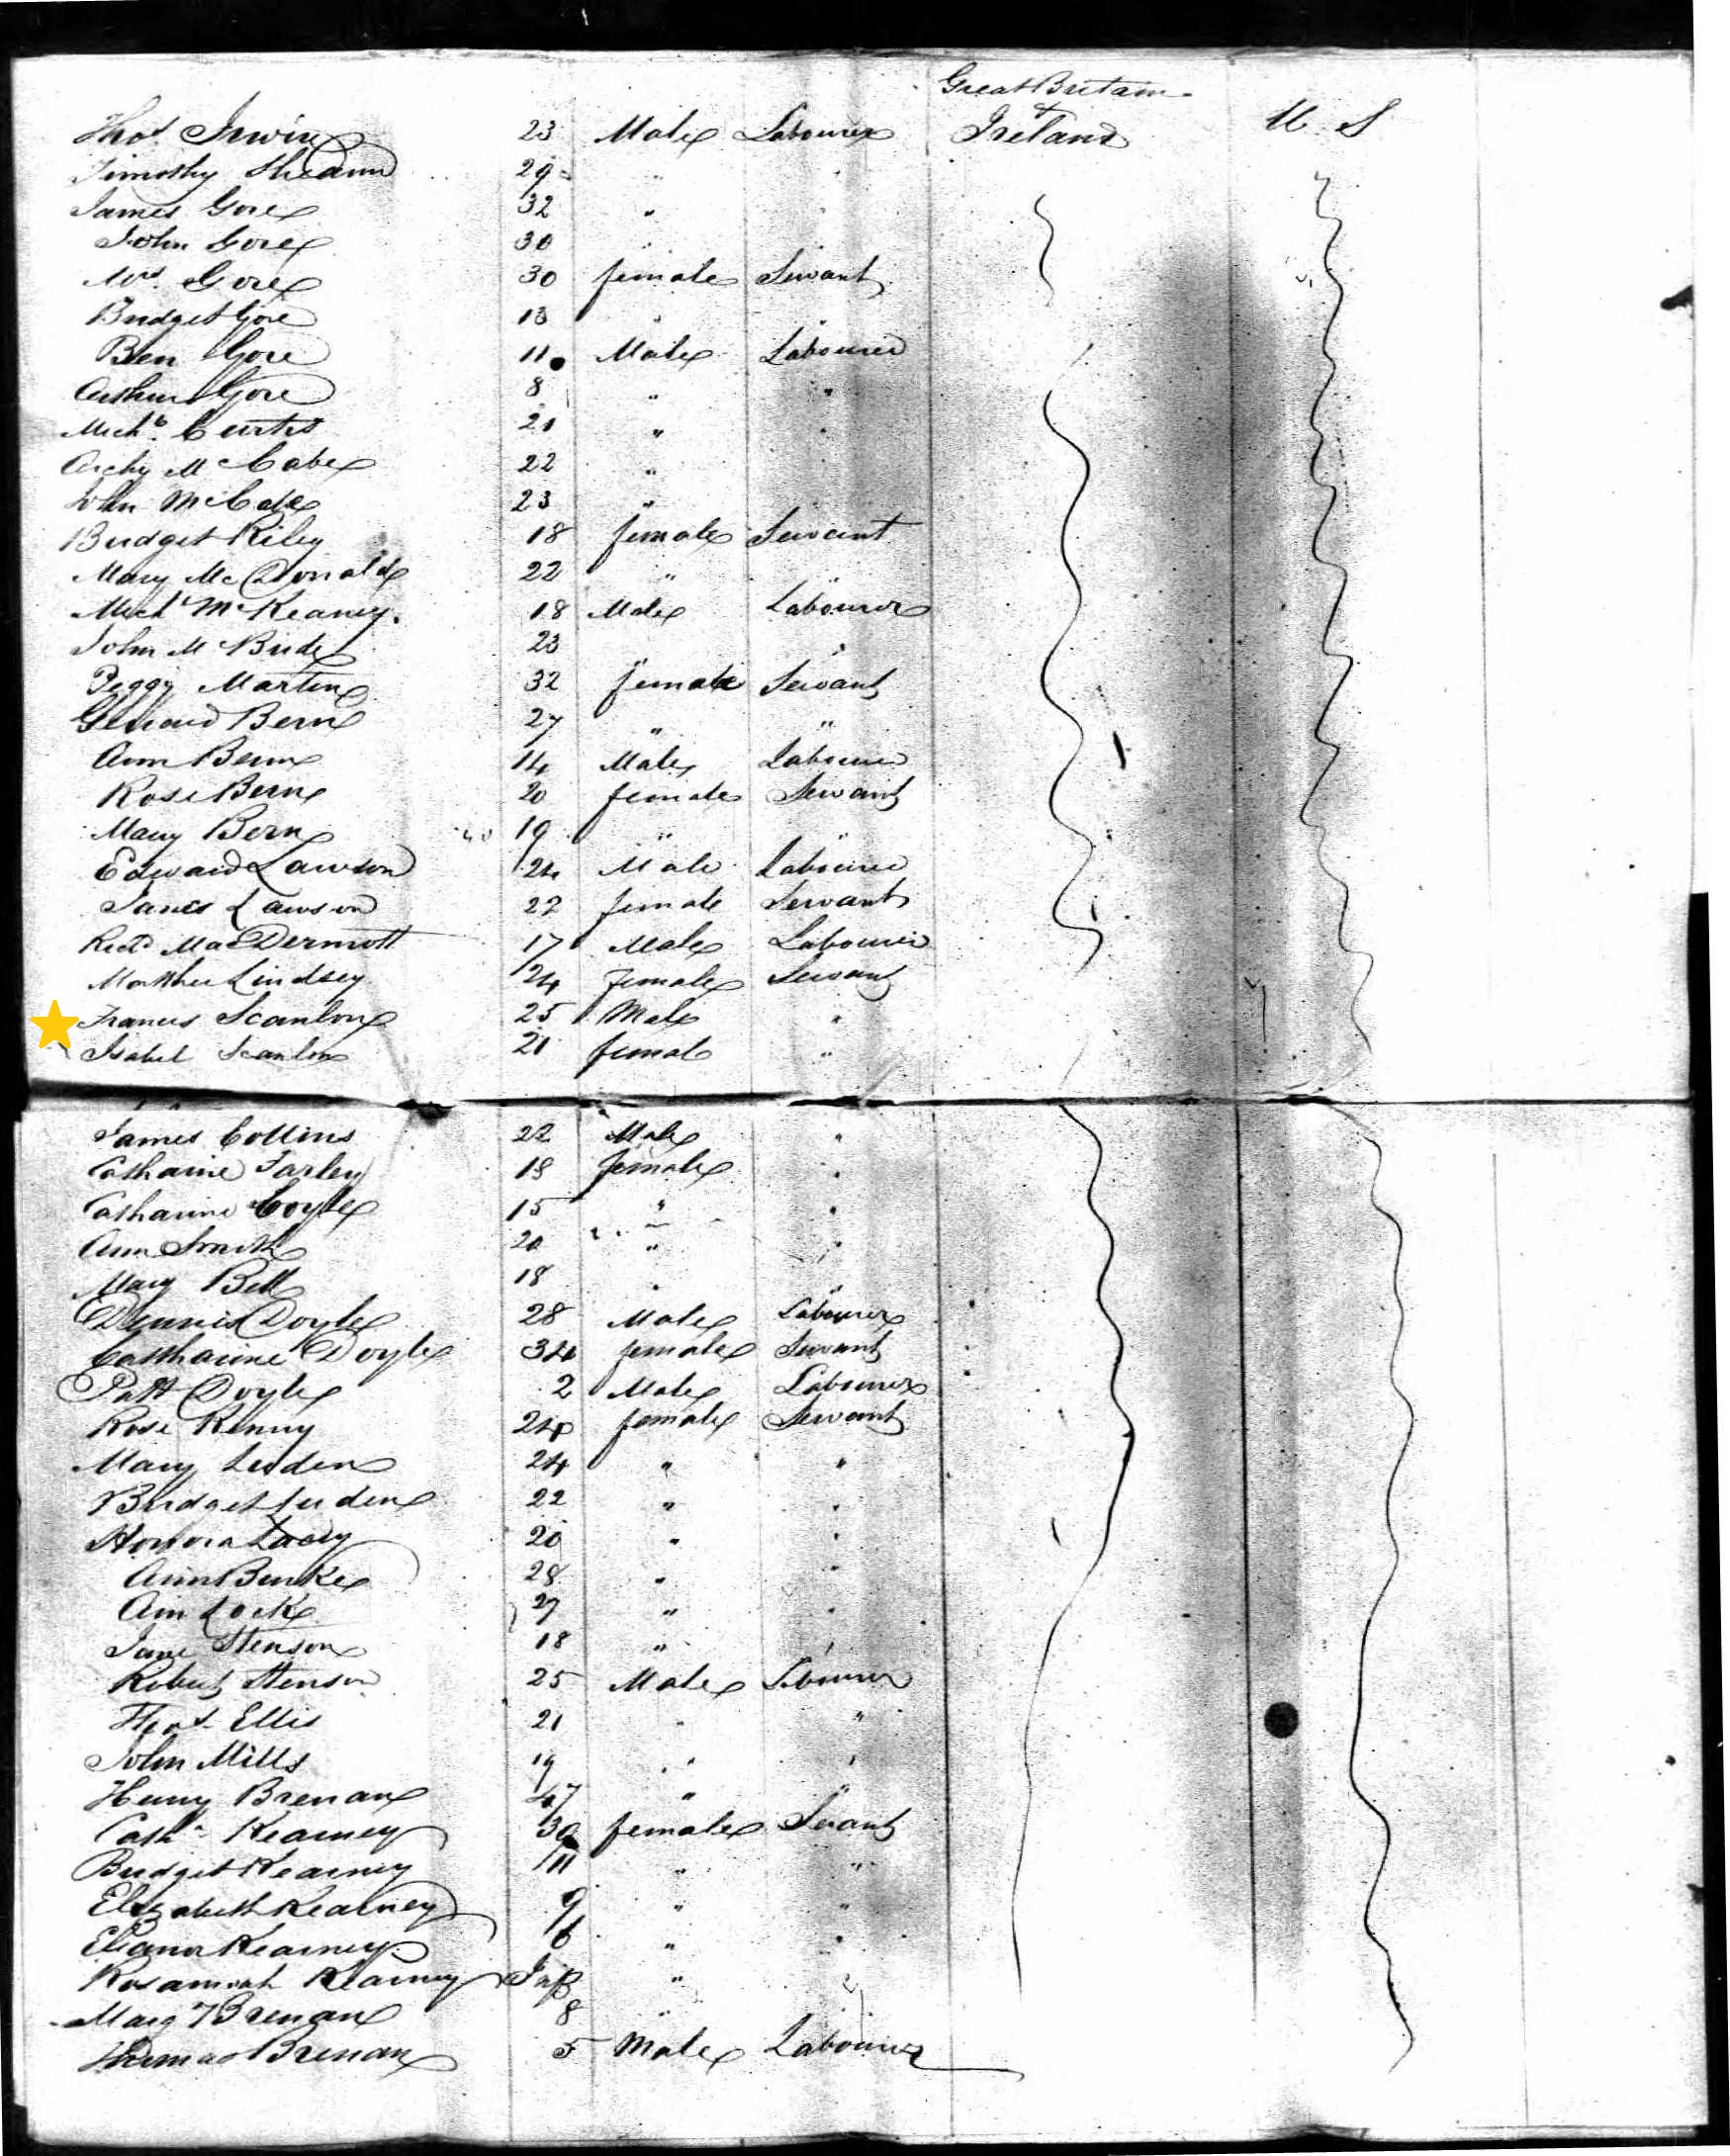 Great Britain
Thos. Irwin 23 Male Labourer & Ireland U. S
Timothy 29 "
James Gore 32 "
John Gore 30 "
Mrs. Gore 30 female Servant
Bridget Gore 13 " "
Ben Gore 11 Male Labourer
Arthur Gore 8 " "
Michl. Curtis 21 " "
Archy McCabe 22 "
John McCabe 23 "
Bridget Riley 18 female Servant
Mary McDonald 22 " "
Michl McKeaney. 18 Male Labourer
John McBride 23 " "
Peggy Martin 32 female Servant
Bern 27 " "
Ann Bern 14 Male Labourer
Rose Bern 20 female Servant
Mary Bern 19 " "
Edward Lawson 24 Male Labourer
James Lawson 22 female Servant
Richd MacDermott 17 Male Labourer
Martha Lindsey 24 Female Servant
Francis Scanlon 25 Male "
Isabel Scanlon 21 female "
James Collins 22 Male "
Catharine Farley 18 female "
Catharine Coyle 15 " "
Ann Smith 20 " "
Mary Bell 18 " "
Dennis Doyle 28 Male Labourer
Catharine Doyle 34 female Servant
Patt Doyle 2 Male Labourer
Rose Kenny 24 female Servant
Mary Luden 24 " "
Bridget Luden 22 " "
Honora Lacey 20 " "
Ann Burke 28 " "
Ann Lock 27 " "
Jane Stenson 18 " "
Robert Stenson 25 Male Labourer
Thos. Ellis 21 " "
John Mills 19 " "
Henry Brenan 47 " "
Cathn Kearney 30 female Servant
Bridget Kearney 11 " "
Elizabeth Kearney 9 " "
Eleanor Kearney 6 " "
Rosannah Kearney Inf "
Mary Brenan 8 "
Thomas Brenan 5 Male Labourer